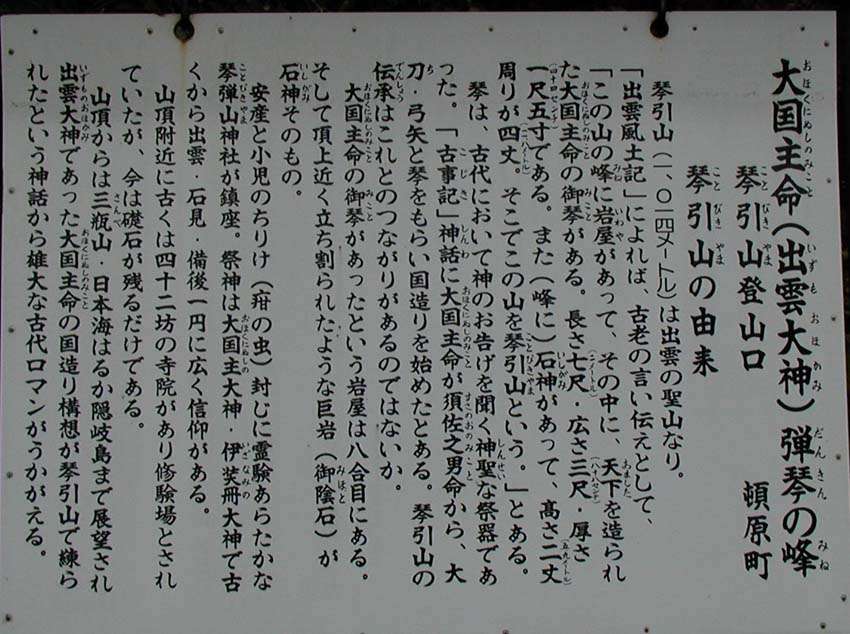 大国主命(出雲大神)弾琴の峰
琴引山登山口 頓原町
琴引山の由来
琴引山(一、〇二四メートル)は出雲の聖山なり。
「出雲風土記」によれば、古老の言い伝えとして、
「この山の峰に岩屋があって、その中に、天下を造られ
た大国主命の御琴がある。長さ七尺・広さ三尺・厚さ
一尺五寸である。また(峰に)石神があって、高さ二丈
周りが四丈。そこでこの山を琴引山という。」とある。
琴は、古代において神のお告げを聞く神聖な祭器であ
った。「古事記」神話に大国主命が須佐之男命から、大
刀・弓矢と琴をもらい国造りを始めたとある。琴引山の
伝承はこれとのつながりがあるのではないか。
大国主命の御琴があったという岩屋は八合目にある。
そして頂上近く立ち割られたような巨岩(御陰石)が
石神そのもの。
安産と小児のちりけ(疳の虫)封じに霊験あらたかな
琴弾山神社が鎮座。祭神は大国主大神・伊弉冊大神で古
くから出雲・石見・備後一円に広く信仰がある。
山頂附近に古くは四十二坊の寺院があり修験場とされ
ていたが、今は礎石が残るだけである。
山頂からは三瓶山・日本海はるか隠岐島まで展望され
出雲大神であった大国主命の国造り構想が琴引山で練ら
れたという神話から雄大な古代ロマンがうかがえる。